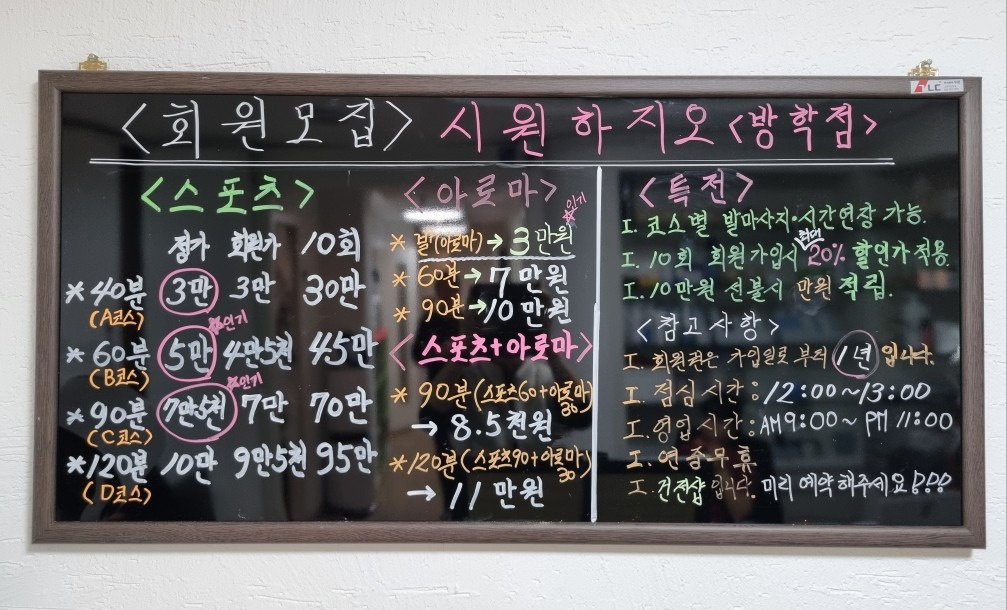 <회원모집> 시원하지오 <방학점>
<스포츠>
정가 회원가 10회
* 40분 3만 3만 30만
(A코스)
인기
* 60분 5만 4만5천 45만
(B코스)
인기
* 90분 7만5천 7만 70만
(C코스)
* 120분 10만 9만5천 95만
(D코스)
<아로마>
인기
* 발(아로마) → 3만원
* 60분 → 7만원
* 90분 → 10만원
<스포츠+아로마>
* 90분 (스포츠60+아로마30)
→ 8.5천원
* 120분 (스포츠90+아로마30)
→ 11만원
<특전>
I. 코스별 발마사지·시간연장 가능.
I. 10회 회원가입시 최대 20% 할인가 적용.
I. 10만원 선불시 만원 적립.
<참고사항>
I. 회원권은 가입일로 부터 1년 입니다.
I. 점심시간: 12:00~13:00
I. 영업시간: AM 9:00~ PM 11:00
I. 연중무휴
I. 건전샵입니다. 미리 예약해주세요!!!
LC